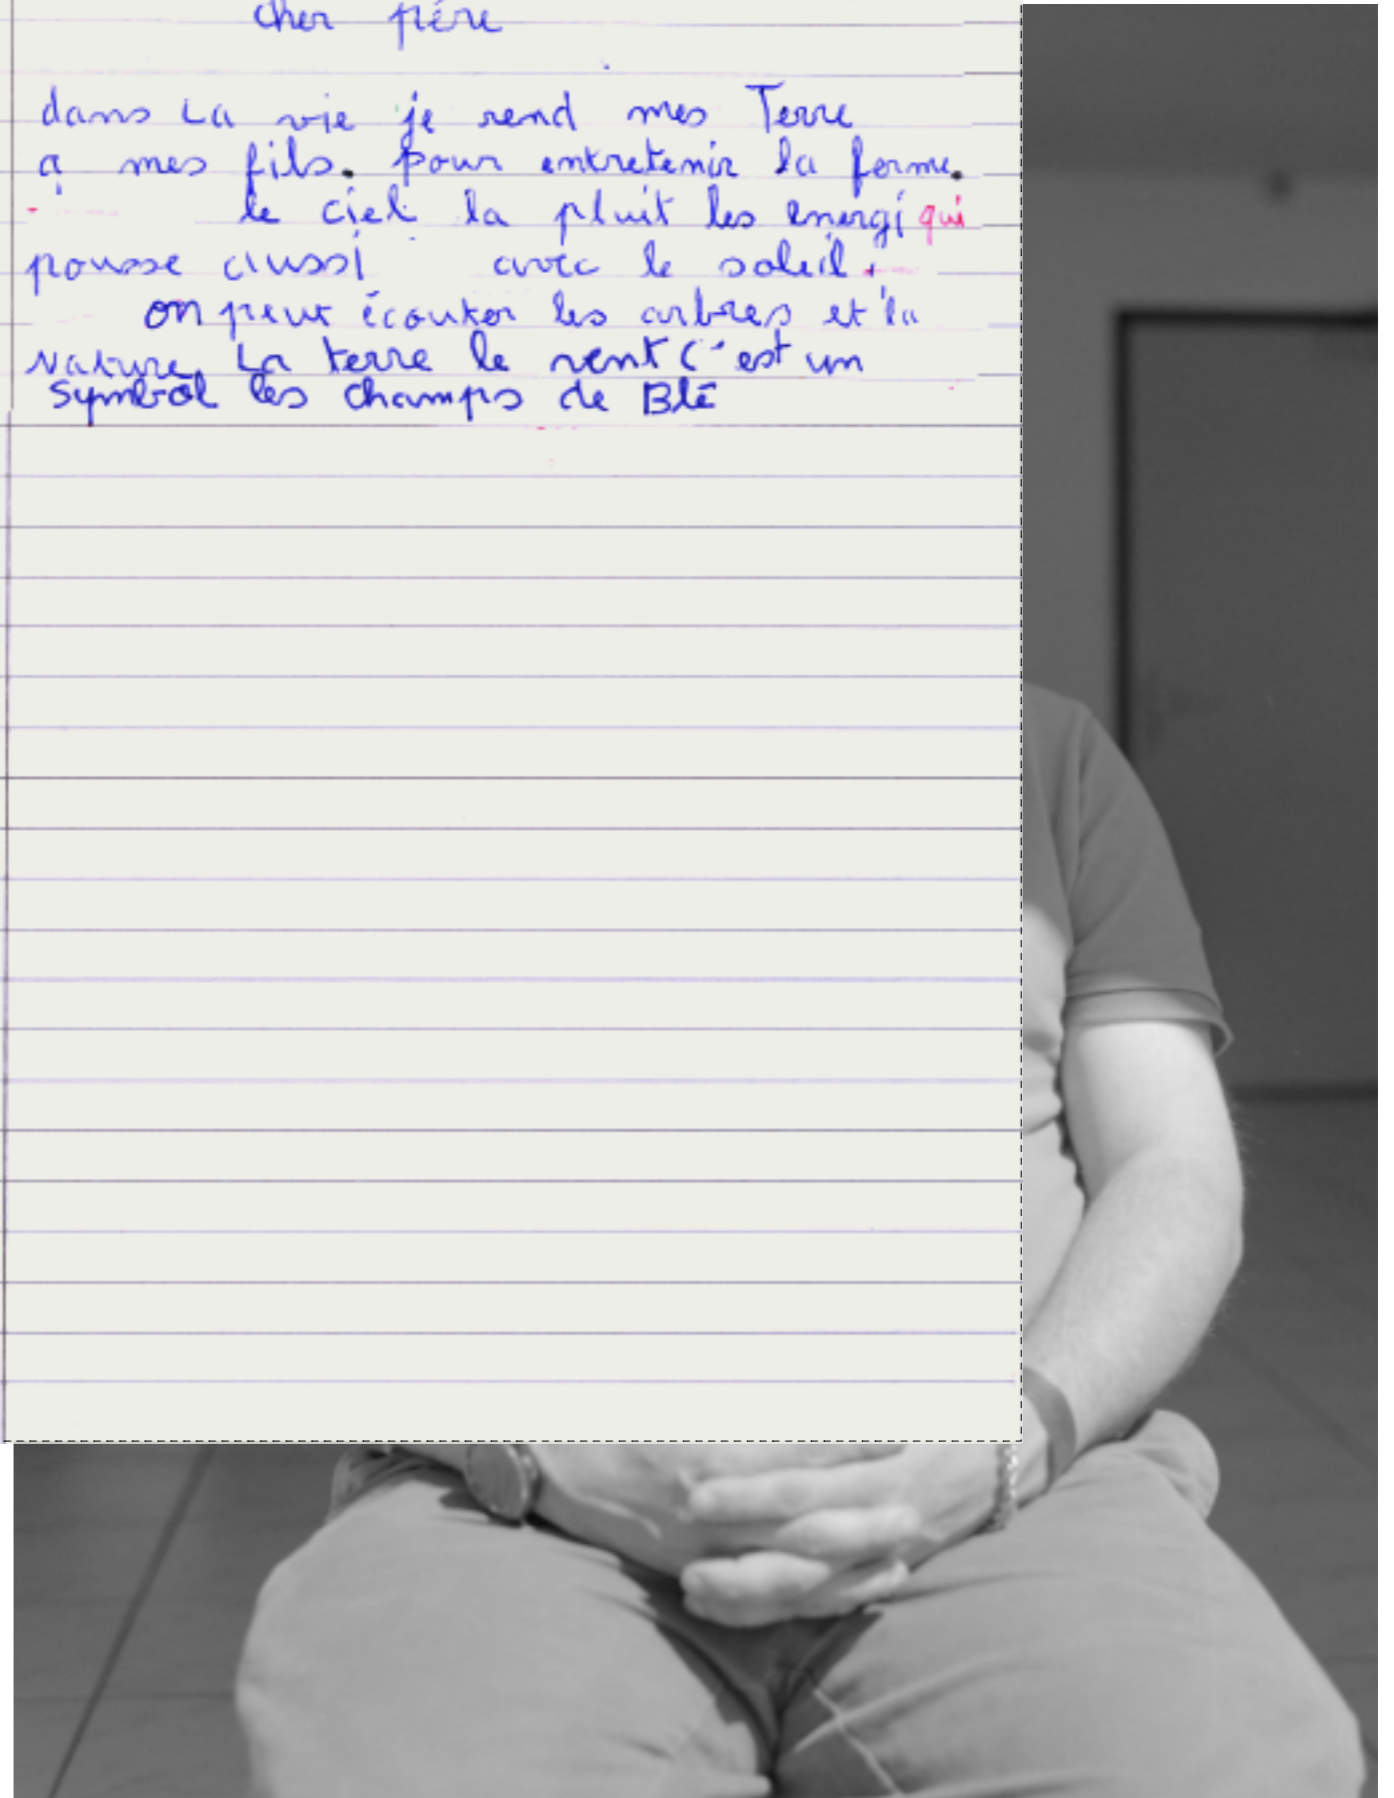 cher père
dans La vie je rend mes Terre
a mes fils. pour entretenir la ferme.
le ciel la pluit les energi qui
pousse aussi avec le soleil.
on peux écouter les arbres et la
Nature. La terre le vent c'est un
Symbol les champs de Blé